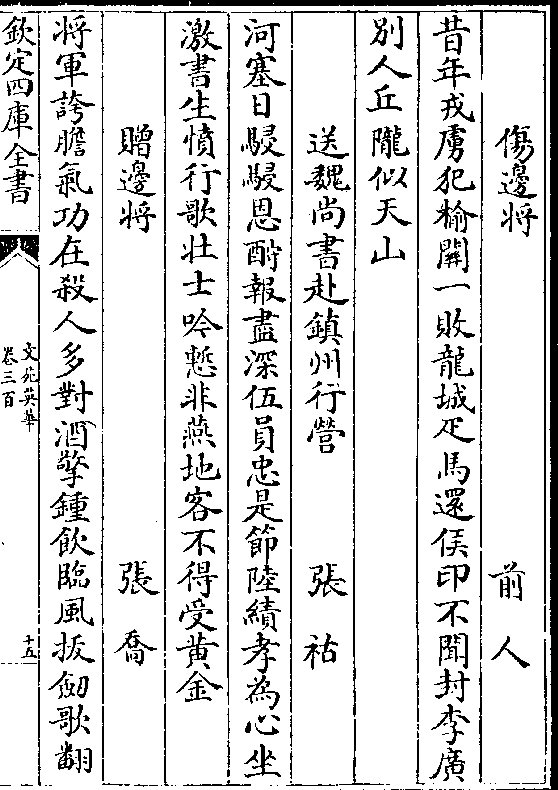 傷邊將 前人
昔年戎虜犯榆關一敗龍城疋馬還侯印不聞封李廣
別人丘隴似天山
送魏尚書赴鎮州行營 張祜
河塞日駸駸恩酧報盡深伍員忠是節陸績孝為心坐
激書生憤行歌壯士吟慙非燕地客不得受黃金
贈邊將 張喬
將軍誇膽氣功在殺人多對酒擎鍾飲臨風扳劒歌翻
欽定四庫全書
文苑英華
卷三百
十五